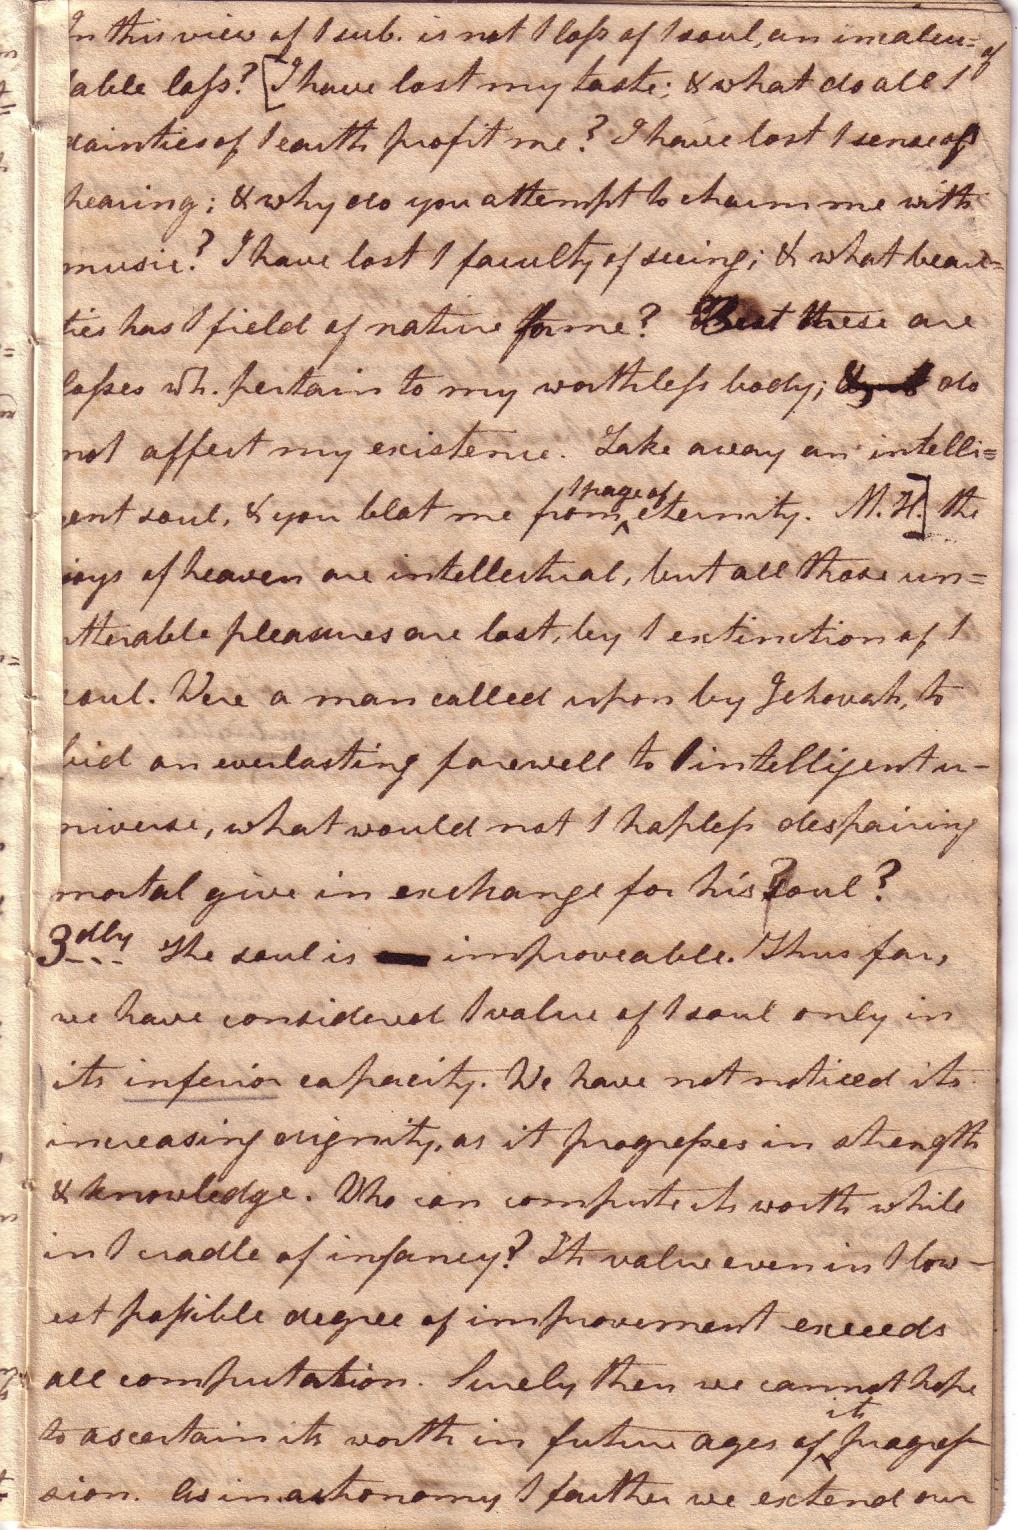 In this view of / sub. is not / loss of / soul, an incalcu=
lable loss? [I have lost my taste; & what do all / of
dainties of / earth profit me? I have lost / sense of
hearing; & why do you attempt to charm me with
music? I have lost / faculty of seeing; & what beau=
ties has / field of nature for me? But these are
losses wh. pertain to my worthless body; do
not affect my existence. Take away an intelli=
gent soul, & you blot me from / page of eternity. M. H.] the
joys of heaven are intellectual, but all those un=
utterable pleasures are lost, by / extinction of /
soul. Were a man called upon by Jehovah, to
bid an everlasting farewell to / intelligent u-
niverse, what would not / hapless despairing
mortal give in exchange for his soul?
3dly The soul is improveable. Thus far,
we have considered / value of / soul only in
its inferior capacity. We have not noticed its
increasing dignity, as it progresses in strength
& knowledge. Who can compute its worth while
in / cradle of infancy? Its value even in / low-
est possible degree of improvement exceeds
all computation. Surely then we cannot hope
to ascertain its worth in future ages of its progres-
sion. As in astronomy / farther we extend our